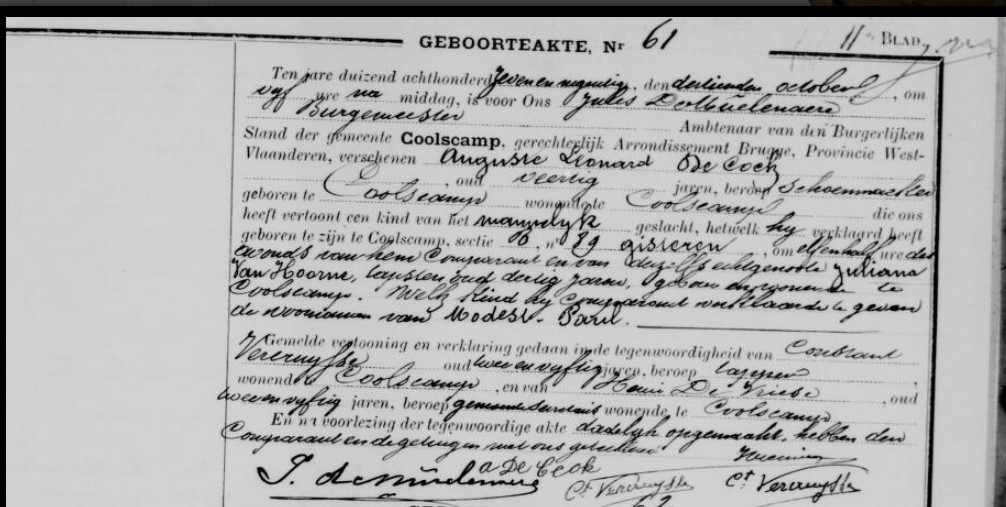 GEBOORTEAKTE, Nr 61
11e BLAD,
Ten jare duizend achthonderd zeven en negentig, den dertienden october, om
vyf ure na middag, is voor Ons Jules
Burgemeester Ambtenaar van den Burgerlijken
Stand der gemeente Coolscamp, gerechterlijk Arrondissement Brugge, Provincie West-
Vlaanderen, verschenen Auguste Leonard De Cock
, oud veertig jaren, beroep Schoenmaker
geboren te Coolscamp wonende te Coolscamp die ons
heeft vertoont een kind van het mannelyk geslacht, hetwelk hy verklaard heeft
geboren te zijn te Coolscamp, sectie B, nr 89 gisteren, om elf en half ure des
avonds van hem Comparant en van dezelfs echtgenoote Juliana
Van Hoorne, oud dertig Jaren, geboren en wonende te
Coolscamp. Welk kind hy Comparant verklaarde te geven
de voornamen van Modest-Paul.
Gemelde vertooning en verklaring gedaan in de tegenwoordigheid van Constant
Vercruysse oud twee en vyftig jaren, beroep
wonende Coolscamp, en van Henri De Vriese, oud
twee en vyftig jaren, beroep gemeente Secretaris wonende te Coolscamp
En na voorlezing der tegenwoordige akte dadelyk opgemaakt, hebben den
Comparant en de getuigen met ons geteekend
A De Cock
Ct Vercruysse
Ct Vercruysse